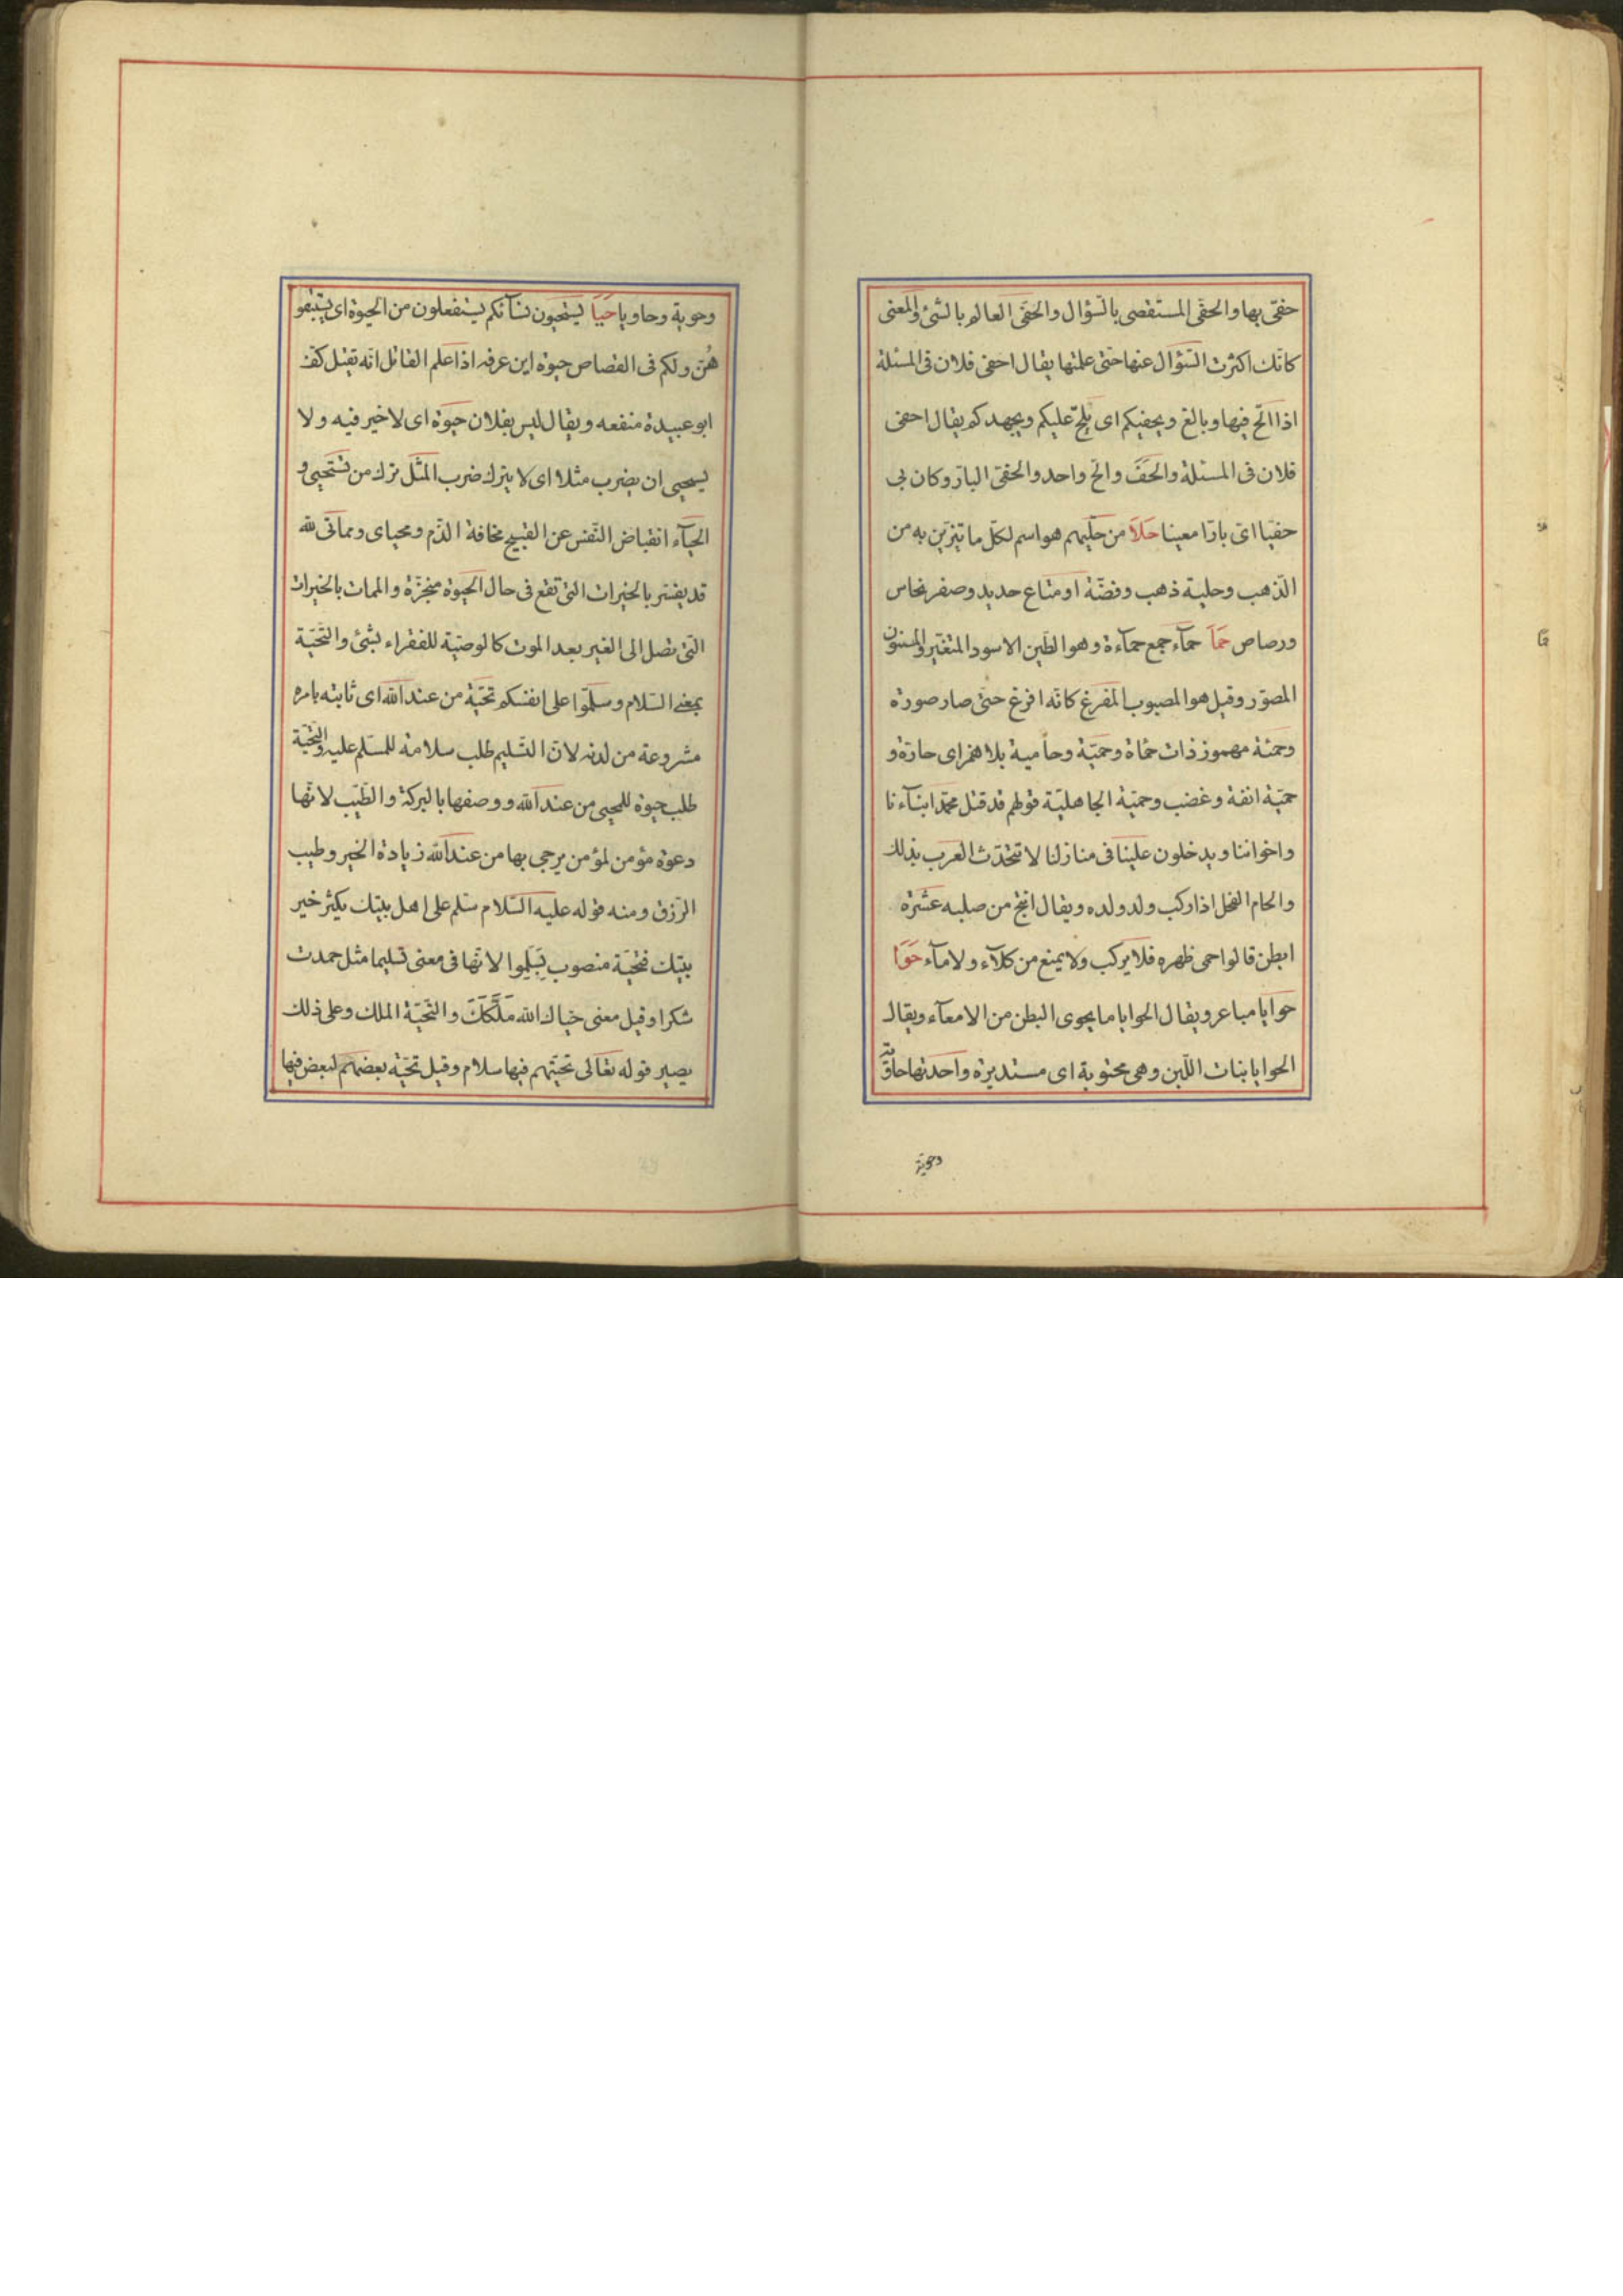 حفىّ بها والحفى المستقصى بالسّؤال والحفى العالم بالشّئ والمعنى
كانّك اكثرت السّؤال عنها حتى علمتها يقال احفى فلان فى المسئلة
اذا الحّ فيها وبالغ ويحفيكم اى يلحّ عليكم ويجهدكم يقال احفى
فلان فى المسئلة والحف والحّ واحد والحفىّ البارّ وكان بى
حفيّا اى بارّا معينا حلا من حليّهم هو اسم لكلّ ما تيزيّن به من
الذّهب وحلية ذهب وفضّة او متاع حديد وصفر نحاس
ورصاص حمأ حمآء جمع حمآءة وهو الطّين الاسود المتغيّر والمسنون
المصوّر وقيل هو المصبوب المفرغ كانّه افرغ حتى صار صورة
وحمئة مهموز ذات حمأة وحميّة وحامية بلا همز اى حارّة و
حميّة انفة وغضب وحميّة الجاهليّة قولهم قد قتل محمّد ابنآءنا
واخواننا ويدخلون علينا فى منازلنا لا تتحدّث العرب بذلك
والحام الفحل اذا ركب ولد ولده ويقال انتج من صلبه عشرة
ابطن قالوا حمى ظهره فلا يركب ولا يمنع من كلآء ولا مآء حوا
حوايا مباعر ويقال الحوايا ما يحوى البطن من الامعآء ويقال
الحوايا بنات اللّبن وهى محتوية اى مستديرة واحدتها حاوية
وحوية
وحوية وحاويا حيا يستحيون نسآئكم يستفعلون من الحيوة اى يستبقو
هنّ ولكم فى القصاص حيوة ابن عرفه اذا علم القاتل انّه تقتل كفّ
ابو عبيدة منفعه ويقال ليس بفلان حيوة اى لا خير فيه ولا
يستحيى ان يضرب مثلا اى لا يترك ضرب المثل ترك من يستحيى و
الحيآء انقباض النّفس عن القبيح مخافة الذّم ومحياى ومماتى لله
قد يفسّر بالخيرات التى تقع فى حال الحيوة منجزّة والممات بالخيرات
التّى تصل الى الغير بعد الموت كالوصيّة للفقراء بشئ والتّحيّة
بمعنى السّلام وسلّموا على انفسكم تحيّة من عند الله اى ثابته بامره
مشروعة من لدنه لانّ التسّليم طلب سلامة للمسّلم عليه والتّحيّة
طلب حيوة للمحيى من عند الله ووصفها بالبركة والطّيّب لانّها
دعوة مؤمن لمؤمن يرجى بها من عند الله زيادة الخير وطيب
الرّزق ومنه قوله عليه السّلام سّلم على اهل بيتك يكثر خير
بيتك فتحيّة منصوب بسّلموا لانّها فى معنى تسليما مثل حمدت
شكرا وقيل معنى حيّاك الله ملّكك والتّحيّة الملك وعلى ذلك
يصير قوله تعالى تحيّتهم فيها سلام وقيل تحيّة بعضهم لبعض فيها